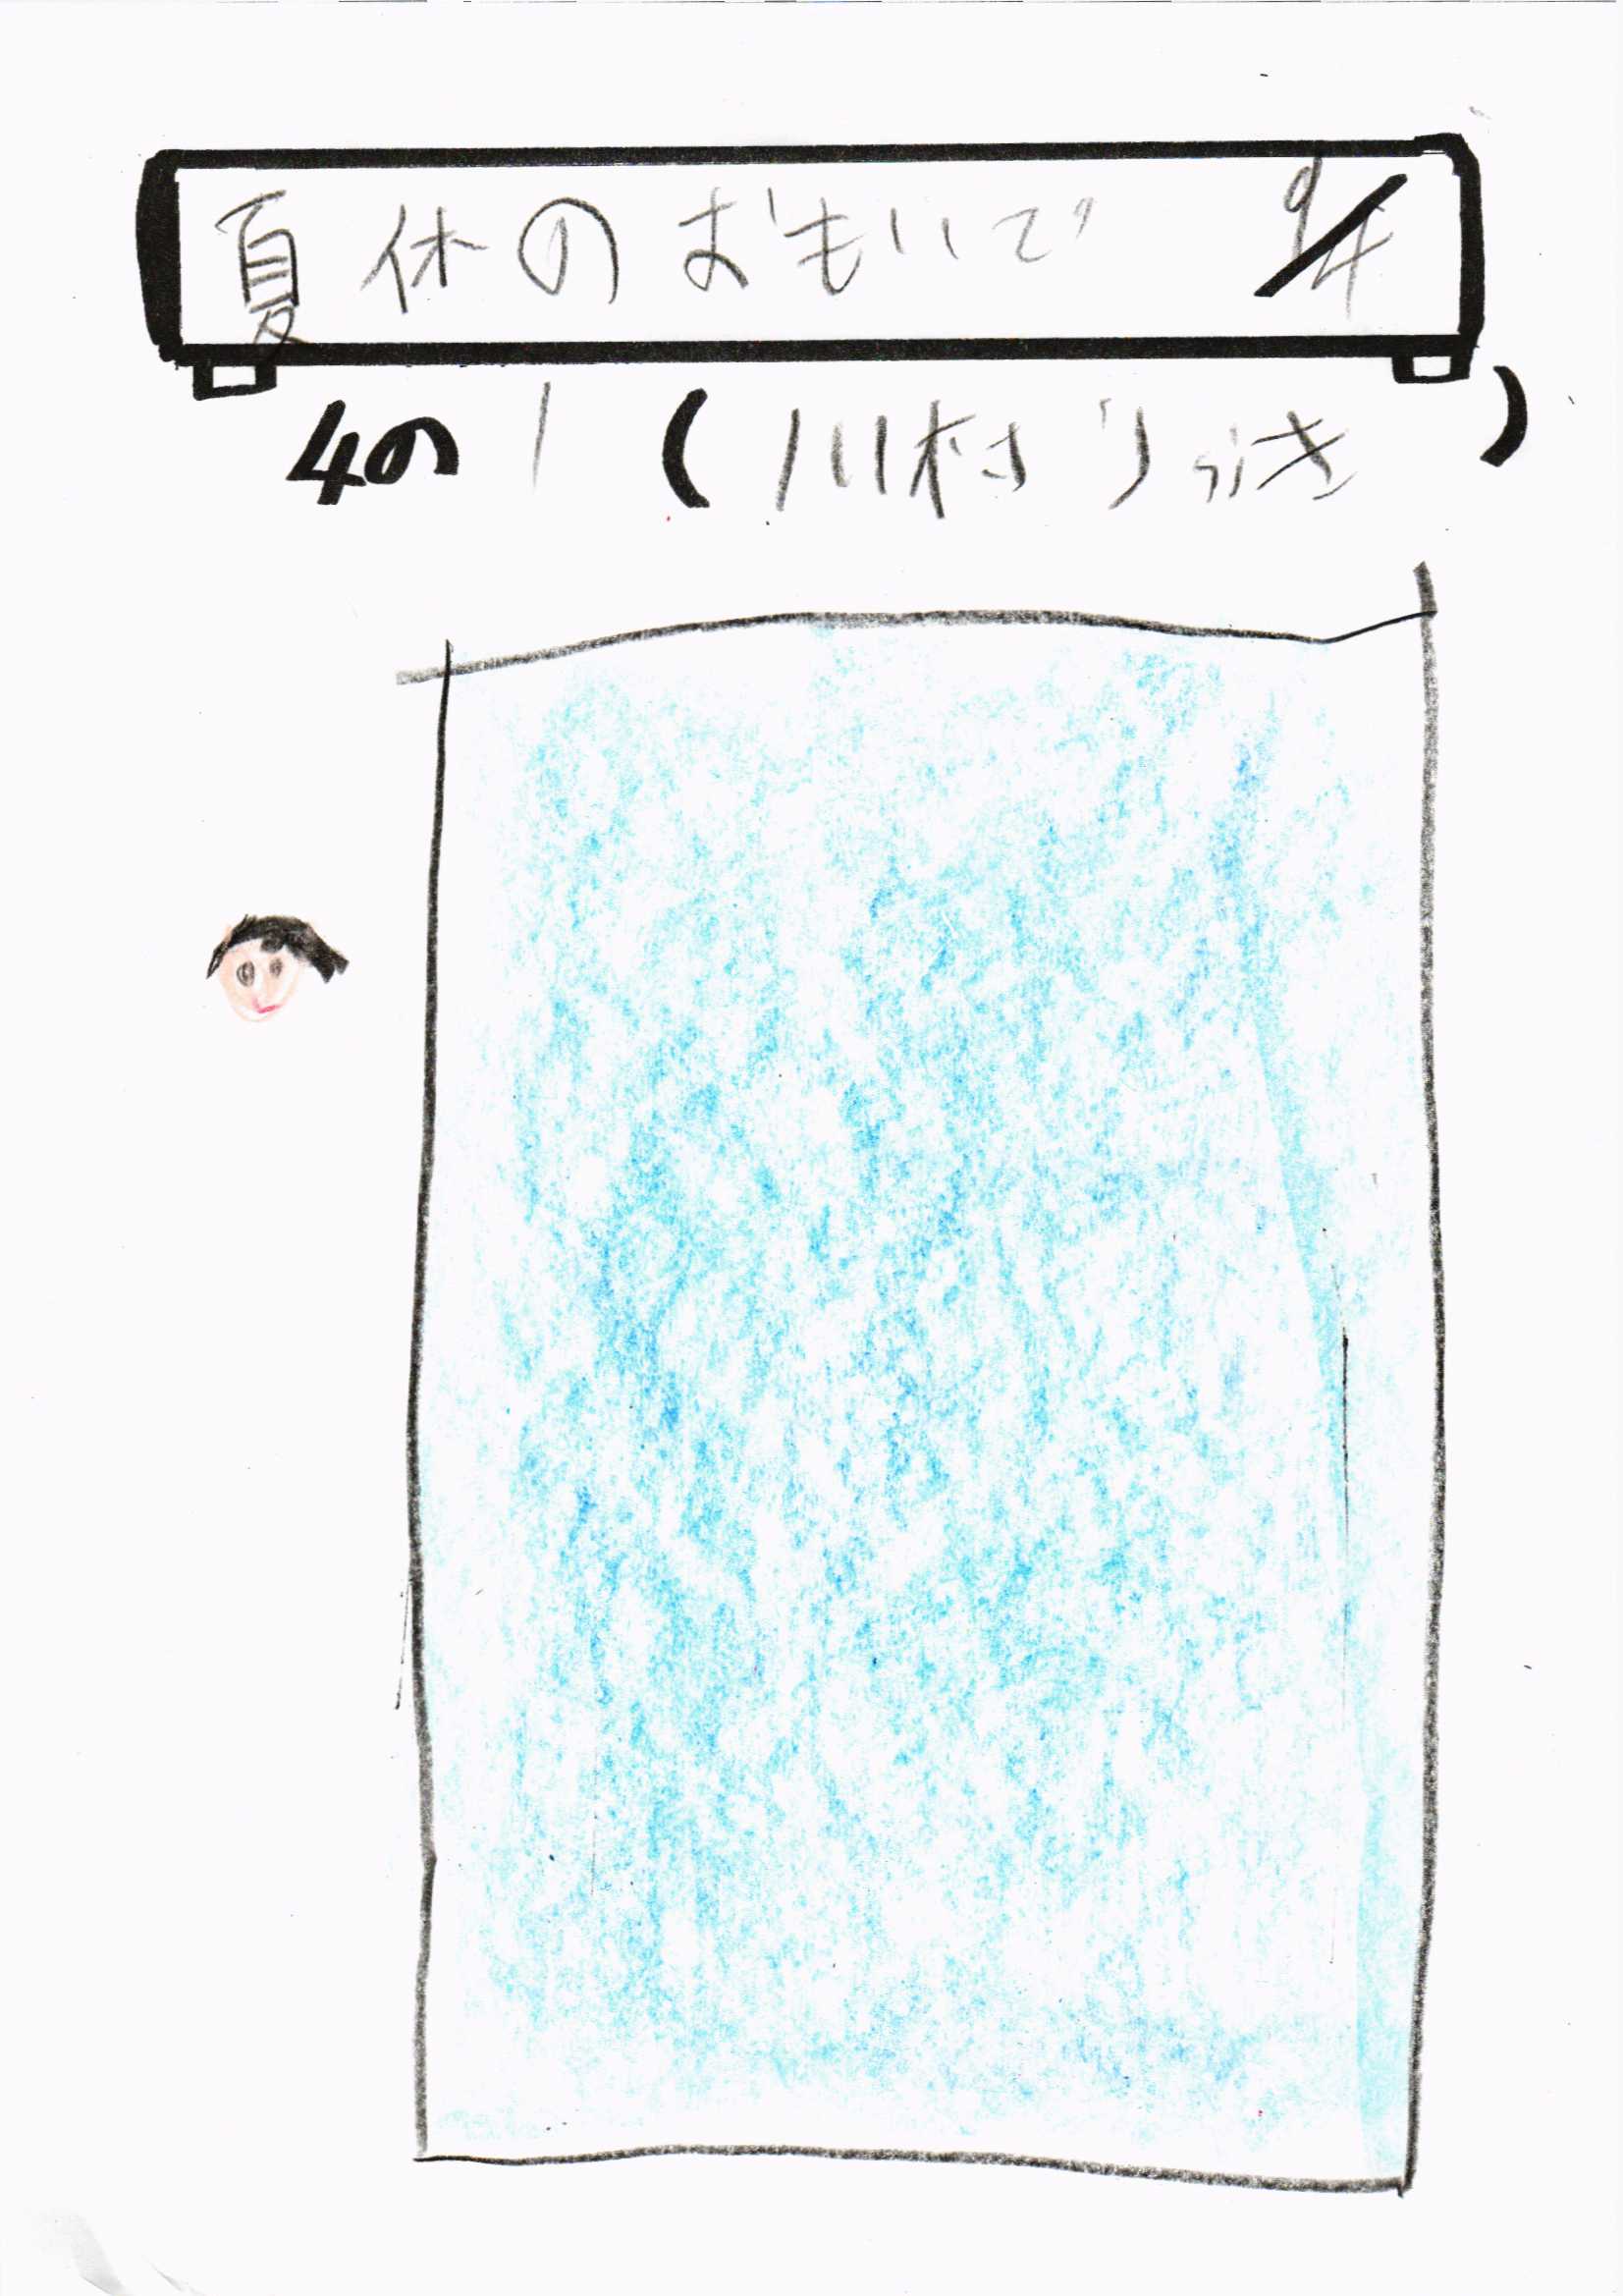 夏休のおもいで 9/4
4の1(川村りゅうき)